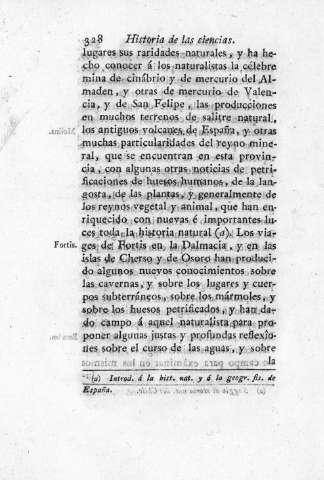 328 Historia de las ciencias.
lugares sus raridades naturales, y ha he-
cho conocer á los naturalistas la célebre
mina de cinábrio y de mercurio del Al-
maden, y otras de mercurio de Valen-
cia, y de San Felipe, las producciones
en muchos terrenos de salitre natural,
los antiguos volcanes de España, y otras
muchas particularidades del reyno mine-
ral, que se encuentran en esta provin-
cia, con algunas otras noticias de petri-
ficaciones de huesos humanos, de la lan-
gosta, de las plantas, y generalmente de
los reynos vegetal y animal, que han en-
riquecido con nuevas é importantes lu-
ces toda la historia natural (a). Los via-
Fortis. ges de Fortis en la Dalmacia, y en las
islas de Cherso y de Osoro han produci-
do algunos nuevos conocimientos sobre
las cavernas, y sobre los lugares y cuer-
pos subterráneos, sobre los mármoles, y
sobre los huesos petrificados, y han da-
do campo á aquel naturalista para pro-
poner algunas justas y profundas reflexîo-
nes sobre el curso de las aguas, y sobre
la
(a) Introd. á la hist. nat. y á la geogr. fis. de
España.